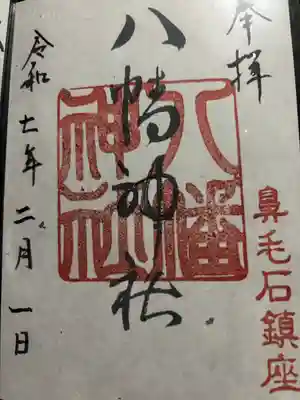 奉拝
八幡神社
八幡神社
鼻毛石鎮座
令和七年二月一日